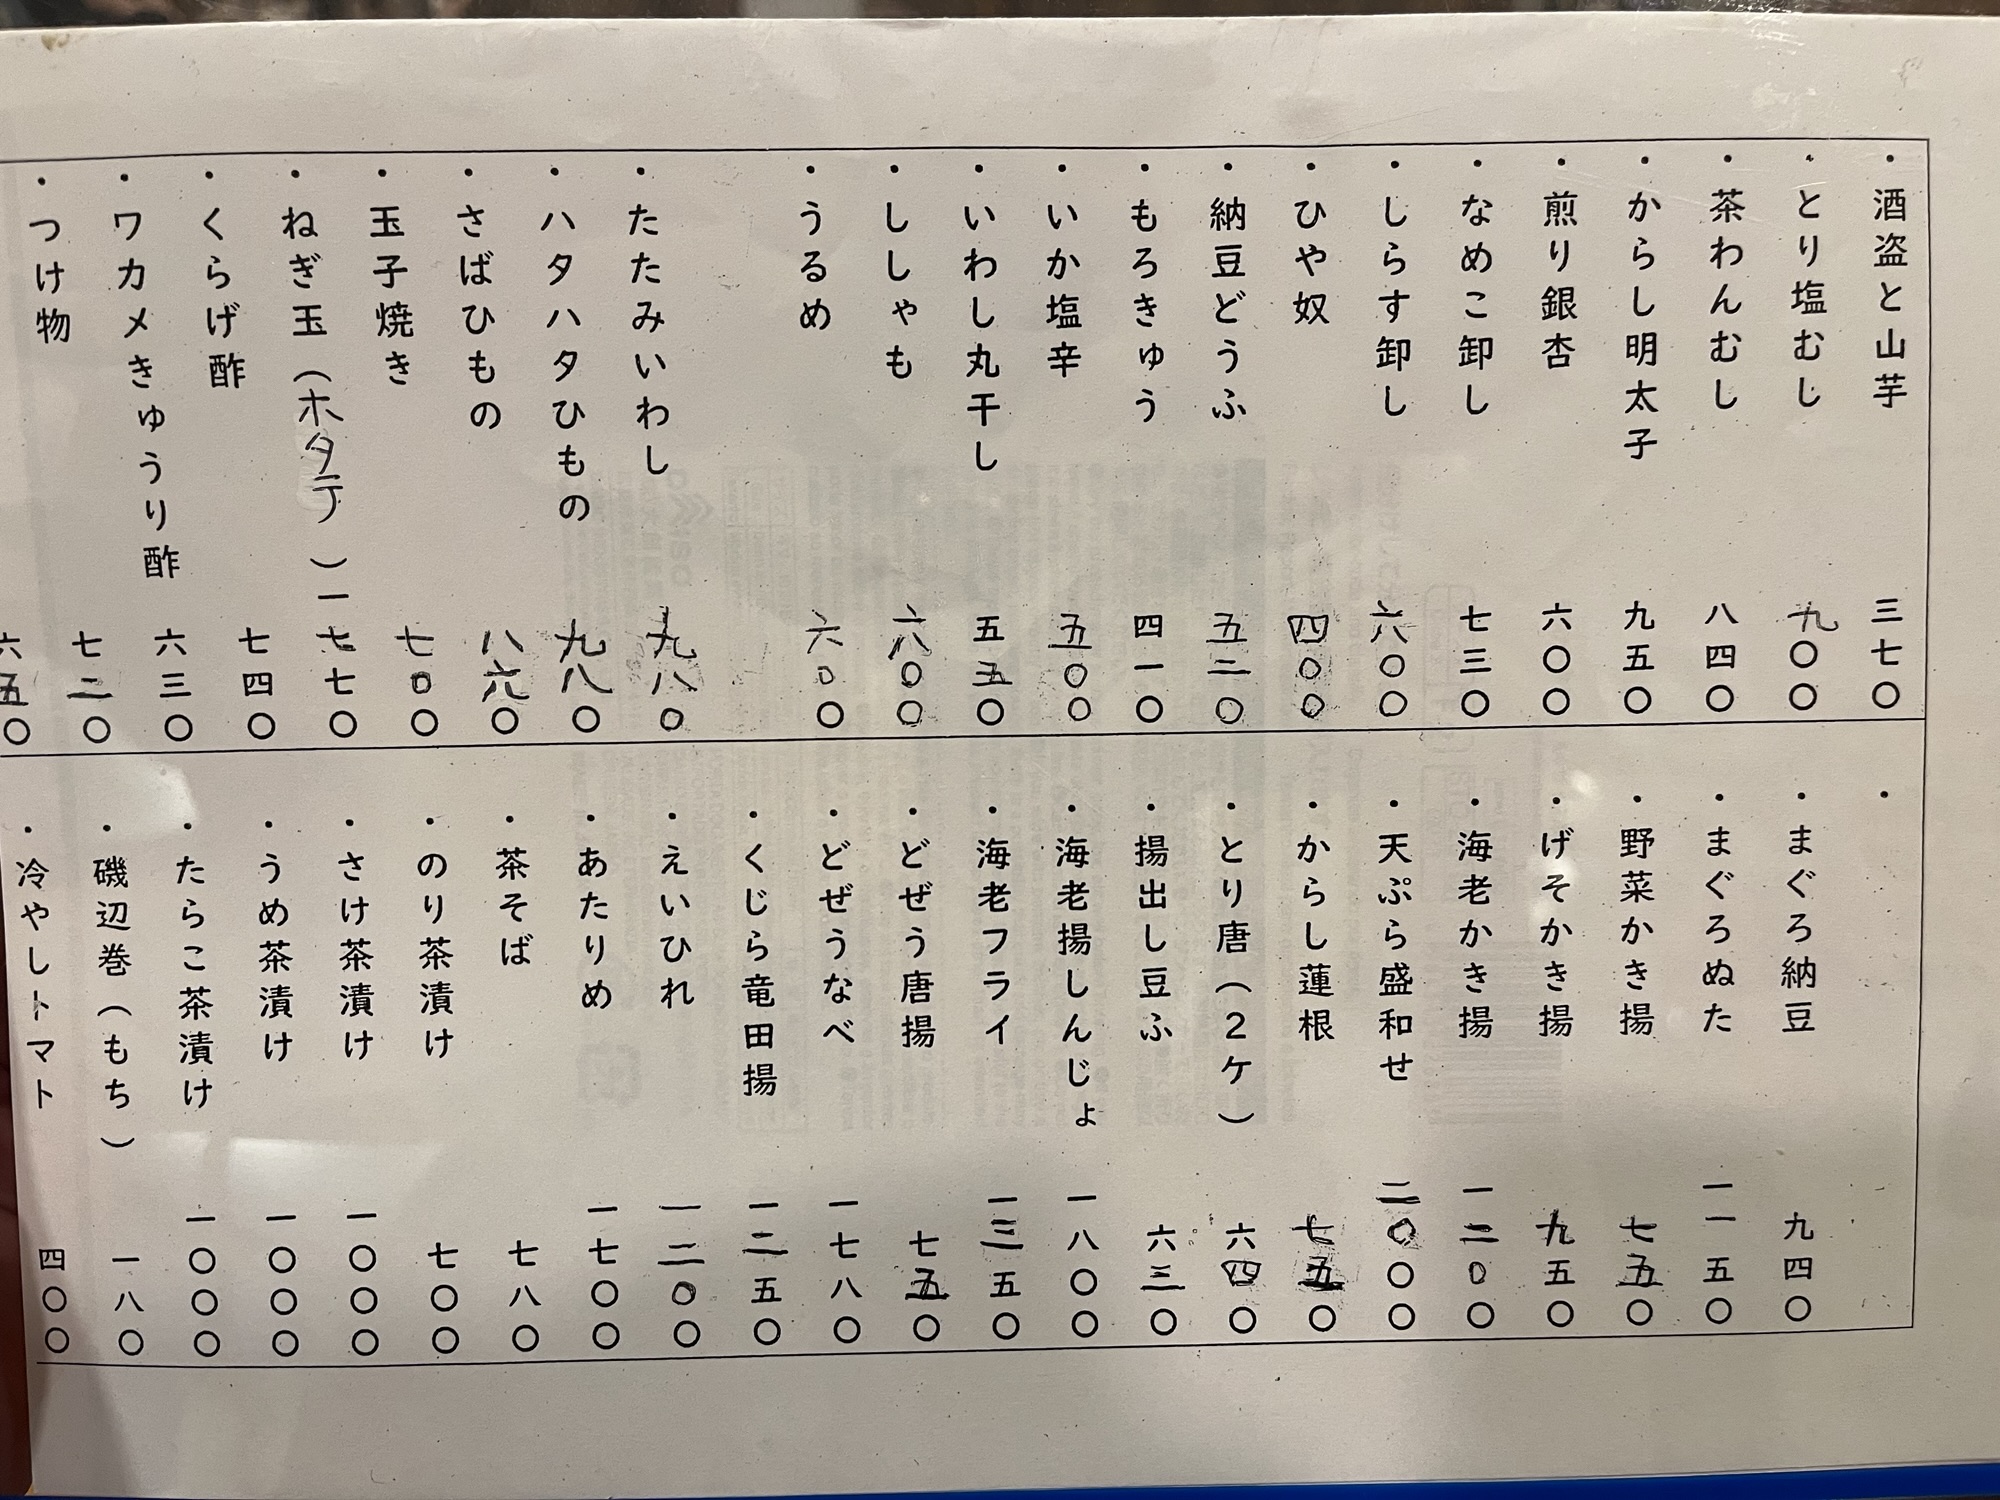 ・酒盗と山芋 三七〇
・とり塩むし 九〇〇
・茶わんむし 八四〇
・からし明太子 九五〇
・煎り銀杏 六〇〇
・なめこ卸し 七三〇
・しらす卸し 六〇〇
・ひや奴 四〇〇
・納豆どうふ 五二〇
・もろきゅう 四一〇
・いか塩辛 五〇〇
・いわし丸干し 五五〇
・ししゃも 六〇〇
・うるめ 六〇〇
・たたみいわし 九八〇
・ハタハタひもの 九八〇
・さばひもの 八六〇
・玉子焼き 七〇〇
・ねぎ玉(ホタテ) 一七七〇
・くらげ酢 七四〇
・ワカメきゅうり酢 六三〇
・つけ物 七二〇
六五〇
・
・まぐろ納豆 九四〇
・まぐろぬた 一一五〇
・野菜かき揚 七五〇
・げそかき揚 九五〇
・海老かき揚 一二〇〇
・天ぷら盛和せ 二〇〇〇
・からし蓮根 七五〇
・とり唐(2ケ) 六四〇
・揚出し豆ふ 六三〇
・海老揚しんじょ 一八〇〇
・海老フライ 一三五〇
・どぜう唐揚 七五〇
・どぜうなべ 一七八〇
・くじら竜田揚 一二五〇
・えいひれ 一二〇〇
・あたりめ 一七〇〇
・茶そば 七八〇
・のり茶漬け 七〇〇
・さけ茶漬け 一〇〇〇
・うめ茶漬け 一〇〇〇
・たらこ茶漬け 一〇〇〇
・磯辺巻(もち) 一八〇
・冷やしトマト 四〇〇